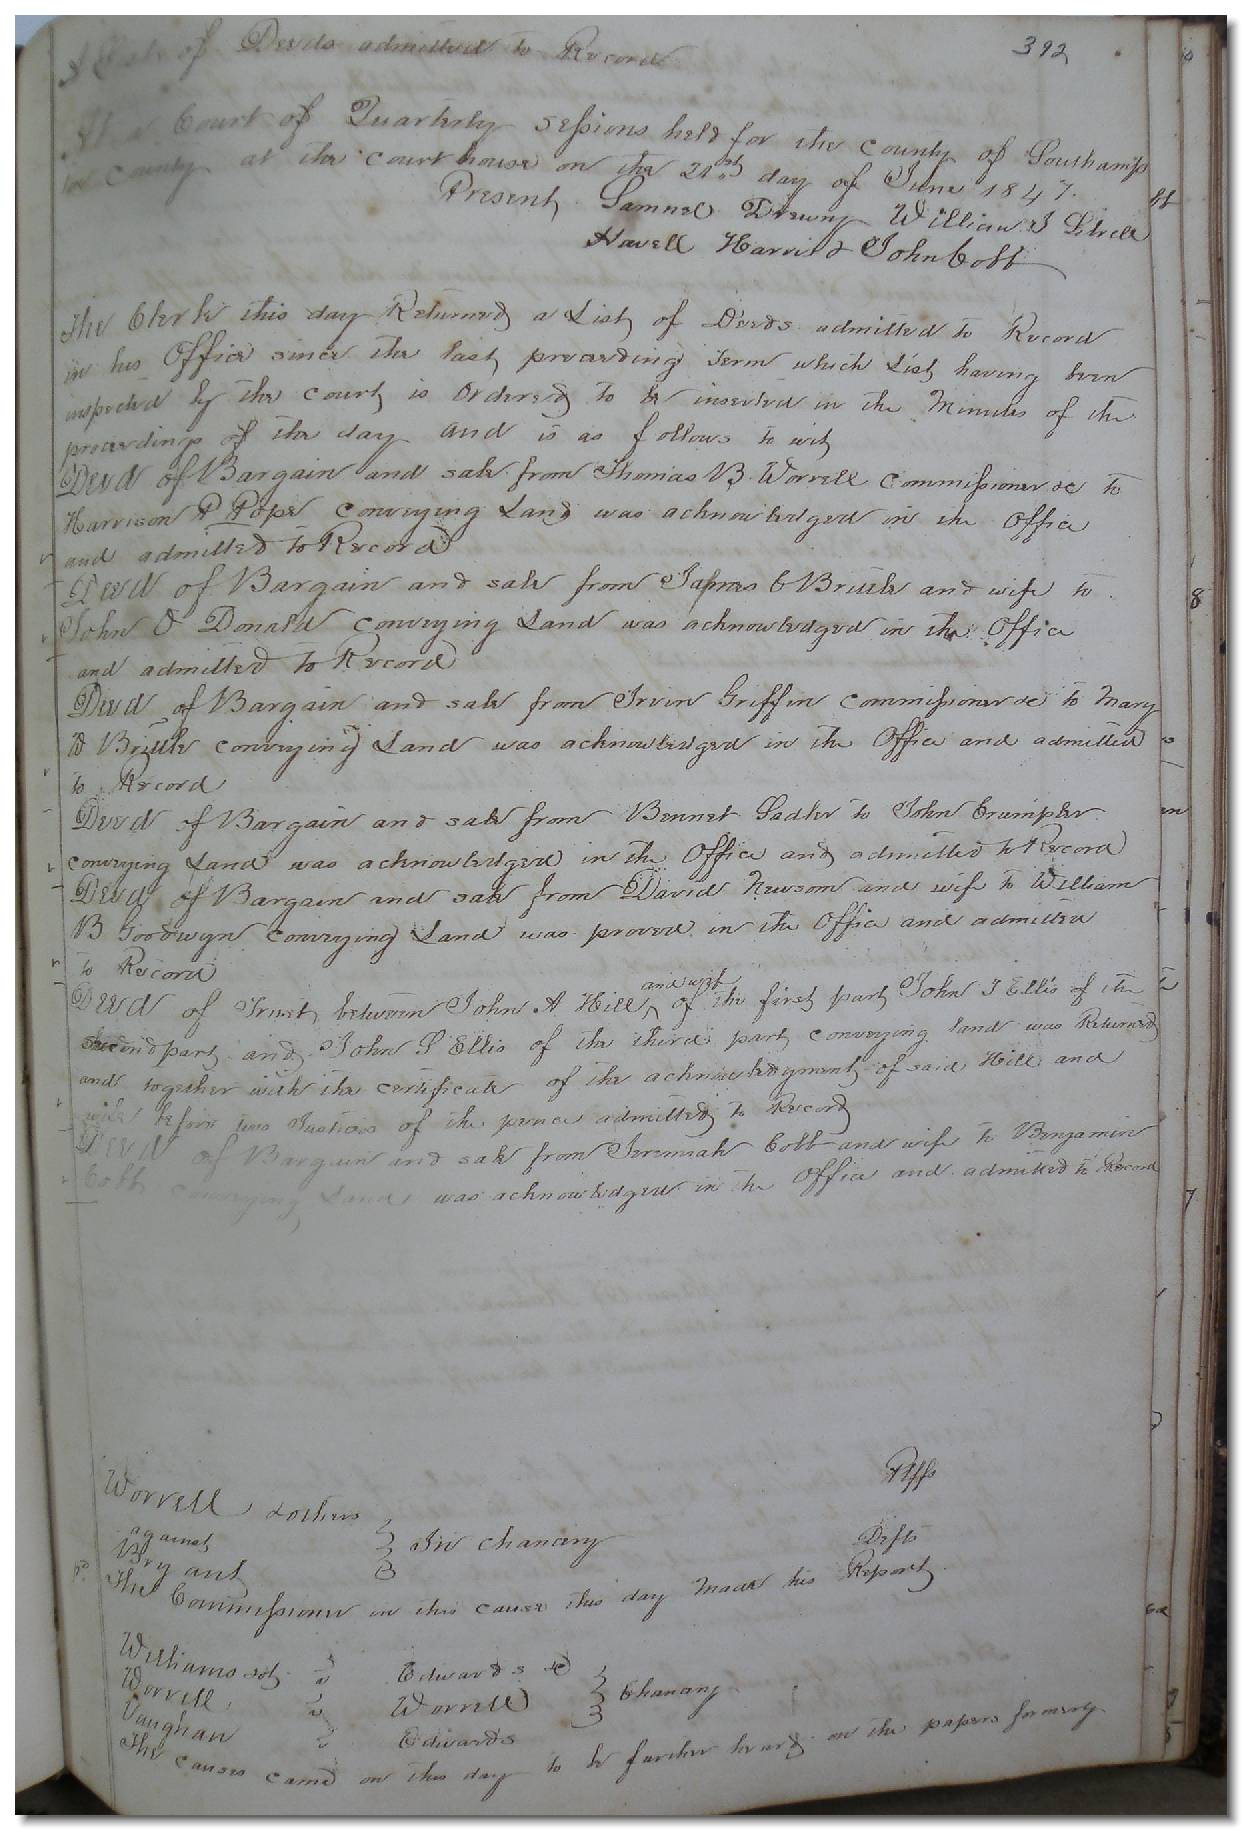 A List of Deeds admitted to Record
392
At a Court of Quarterly sessions held for the County of Southamp
ton County at the Court house on the 21st day of June 1847.
Present Samuel Drewry William J Sebrell
Howell Harris & John Cobb
The Clerk this day Returned a List of Deeds admitted to Record
in his Office since the last preceeding Term which List having been
inspected by the Court is Ordered to be inserted in the Minutes of the
proceedings of the day and is as follows to wit
Deed of Bargain and sale from Thomas B. Worrell Commissioner &c to
Harrison P Pope Conveying Land was acknowledged in the Office
and admitted to Record
Deed of Bargain and sale from James C Brittle and wife to
John O Donald Conveying Land was acknowledged in the Office
and admitted to Record
Deed of Bargain and sale from Irvin Griffin Commissioner &c to Mary
Brittle conveying Land was acknowledged in the Office and admitted
to Record
Deed of Bargain and sale from Bennet Sadler to John Crumpler
conveying Land was acknowledged in the Office and admitted to Record
Deed of Bargain and sale from David Newsom and wife to William
B Goodwyn Conveying Land was proved in the Office and admitted
to Record
and wife
Deed of Trust between John A Hill of the first part John J Ellis of the
second part and John P Ellis of the third part conveying land was Returned
and together with the certificate of the acknowledgment of said Hill and
wife before two Justices of the peace admitted to Record
Deed of Bargain and sale from Jeremiah Cobb and wife to Benjamin
Cobb conveying Land was acknowledged in the Office and admitted to Record
Worrell & others Plffs
against In Chancery
Bryant Defts
The Commissioner in this cause this day made his Report.
Williams v Edwards &c
Worrell v Worrell Chancery
Vaughan v Edwards
The causes came on this day to be further heard on the papers formerly